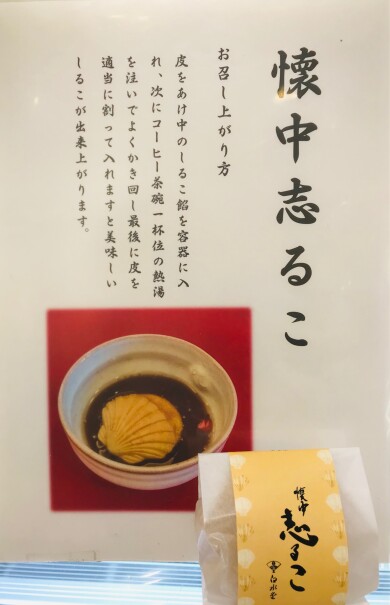 懐中志るこ
お召し上がり方
皮をあけ中のしるこ餡を容器に入
れ、次にコーヒー茶碗一杯位の熱湯
を注いでよくかき回し最後に皮を
適当に割って入れますと美味しい
しるこが出来上がります。
懐中
志るこ
白水堂